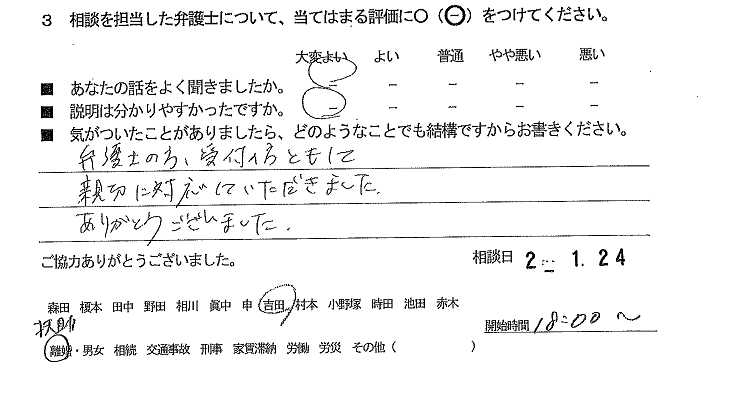 3 相談を担当した弁護士について、当てはまる評価に○(⊖)をつけてください。
大変よい よい 普通 やや悪い 悪い
■ あなたの話をよく聞きましたか。 － － － － －
■ 説明は分かりやすかったですか。 － － － － －
■ 気がついたことがありましたら、どのようなことでも結構ですからお書きください。
弁護士の方、受付の方ともして
親切に対応していただきました.
ありがとうございました.
ご協力ありがとうございました。
相談日 2 - 1.24
森田 榎本 田中 野田 相川 眞中 申 吉田 村本 小野塚 時田 池田 赤木
扶助
開始時間 18:00 ～
離婚・男女 相続 交通事故 刑事 家賃滞納 労働 労災 その他( )